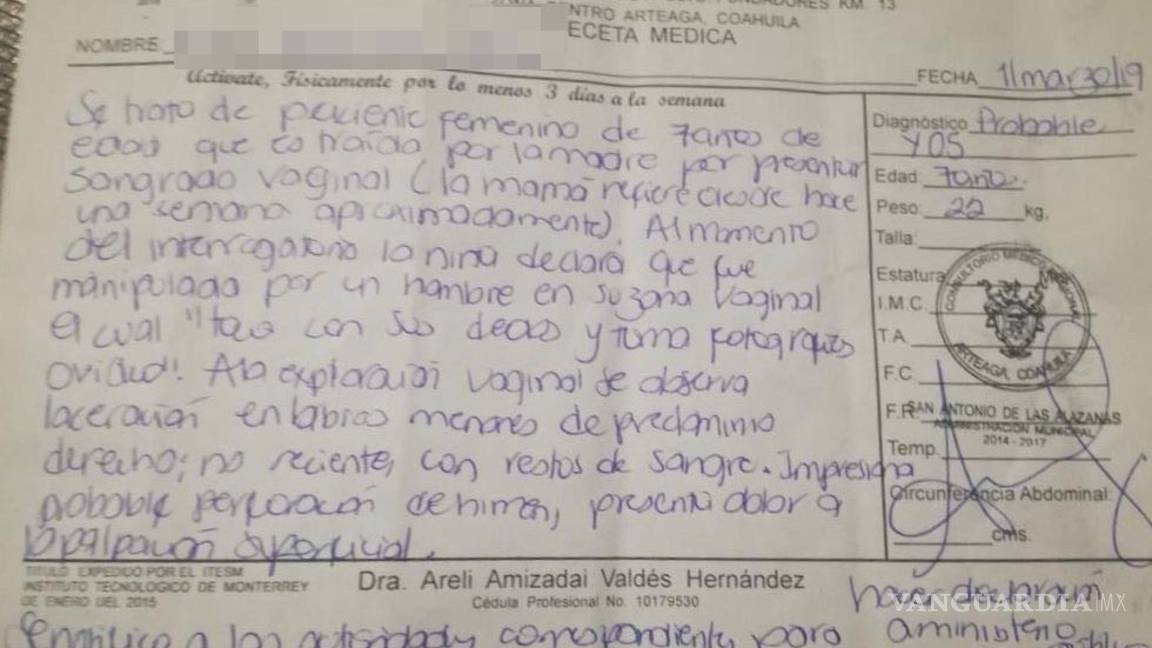 CENTRO ARTEAGA, COAHUILA
RECETA MEDICA
NOMBRE
FECHA 11 marzo/19
Activate, Físicamente por lo menos 3 días a la semana
Se trata de paciente femenino de 7 años de
edad que es traída por la madre por presentar
sangrado vaginal (la mamá refiere desde hace
una semana aproximadamente). Al momento
del interrogatorio la niña declara que fue
manipulada por un hombre en su zona vaginal
el cual "toca con sus dedos y toma fotografías
A la exploración vaginal se observa
laceración en labios menores de predominio
derecho; no reciente, con restos de sangre. Impresiona
probable perforación de himen, presenta dolor a
la palpación superficial.
Diagnóstico Probable
Edad: 7 años.
Peso: 22 kg.
Talla:
Estatura
I.M.C.
T.A.
F.C.
F.R.
Temp.
Circunferencia Abdominal:
cms.
CONSULTORIO MEDICO
ARTEAGA, COAHUILA
SAN ANTONIO DE LAS ALAZANAS
ADMINISTRACIÓN MUNICIPAL
2014 - 2017
TITULO EXPEDIDO POR EL ITESM
INSTITUTO TECNOLOGICO DE MONTERREY
DE ENERO DEL 2015
Dra. Areli Amizadai Valdés Hernández
Cédula Profesional No. 10179530
hacer declaración
a ministerio
correspondiente para
VANGUARDIA MX